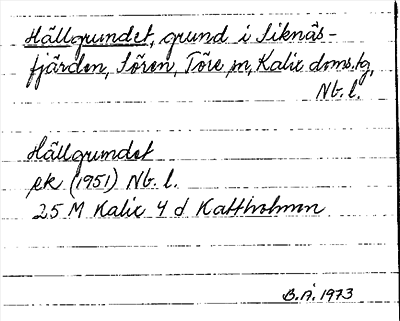 Hällgrundet, grund i Siknäs-
fjärden, Sören, Töre sn, Kalix doms.tg,
Nb. l.
Hällgrundet
ek (1951) Nb. l.
25 M Kalix 4 d Kattholmen
B.Å. 1973